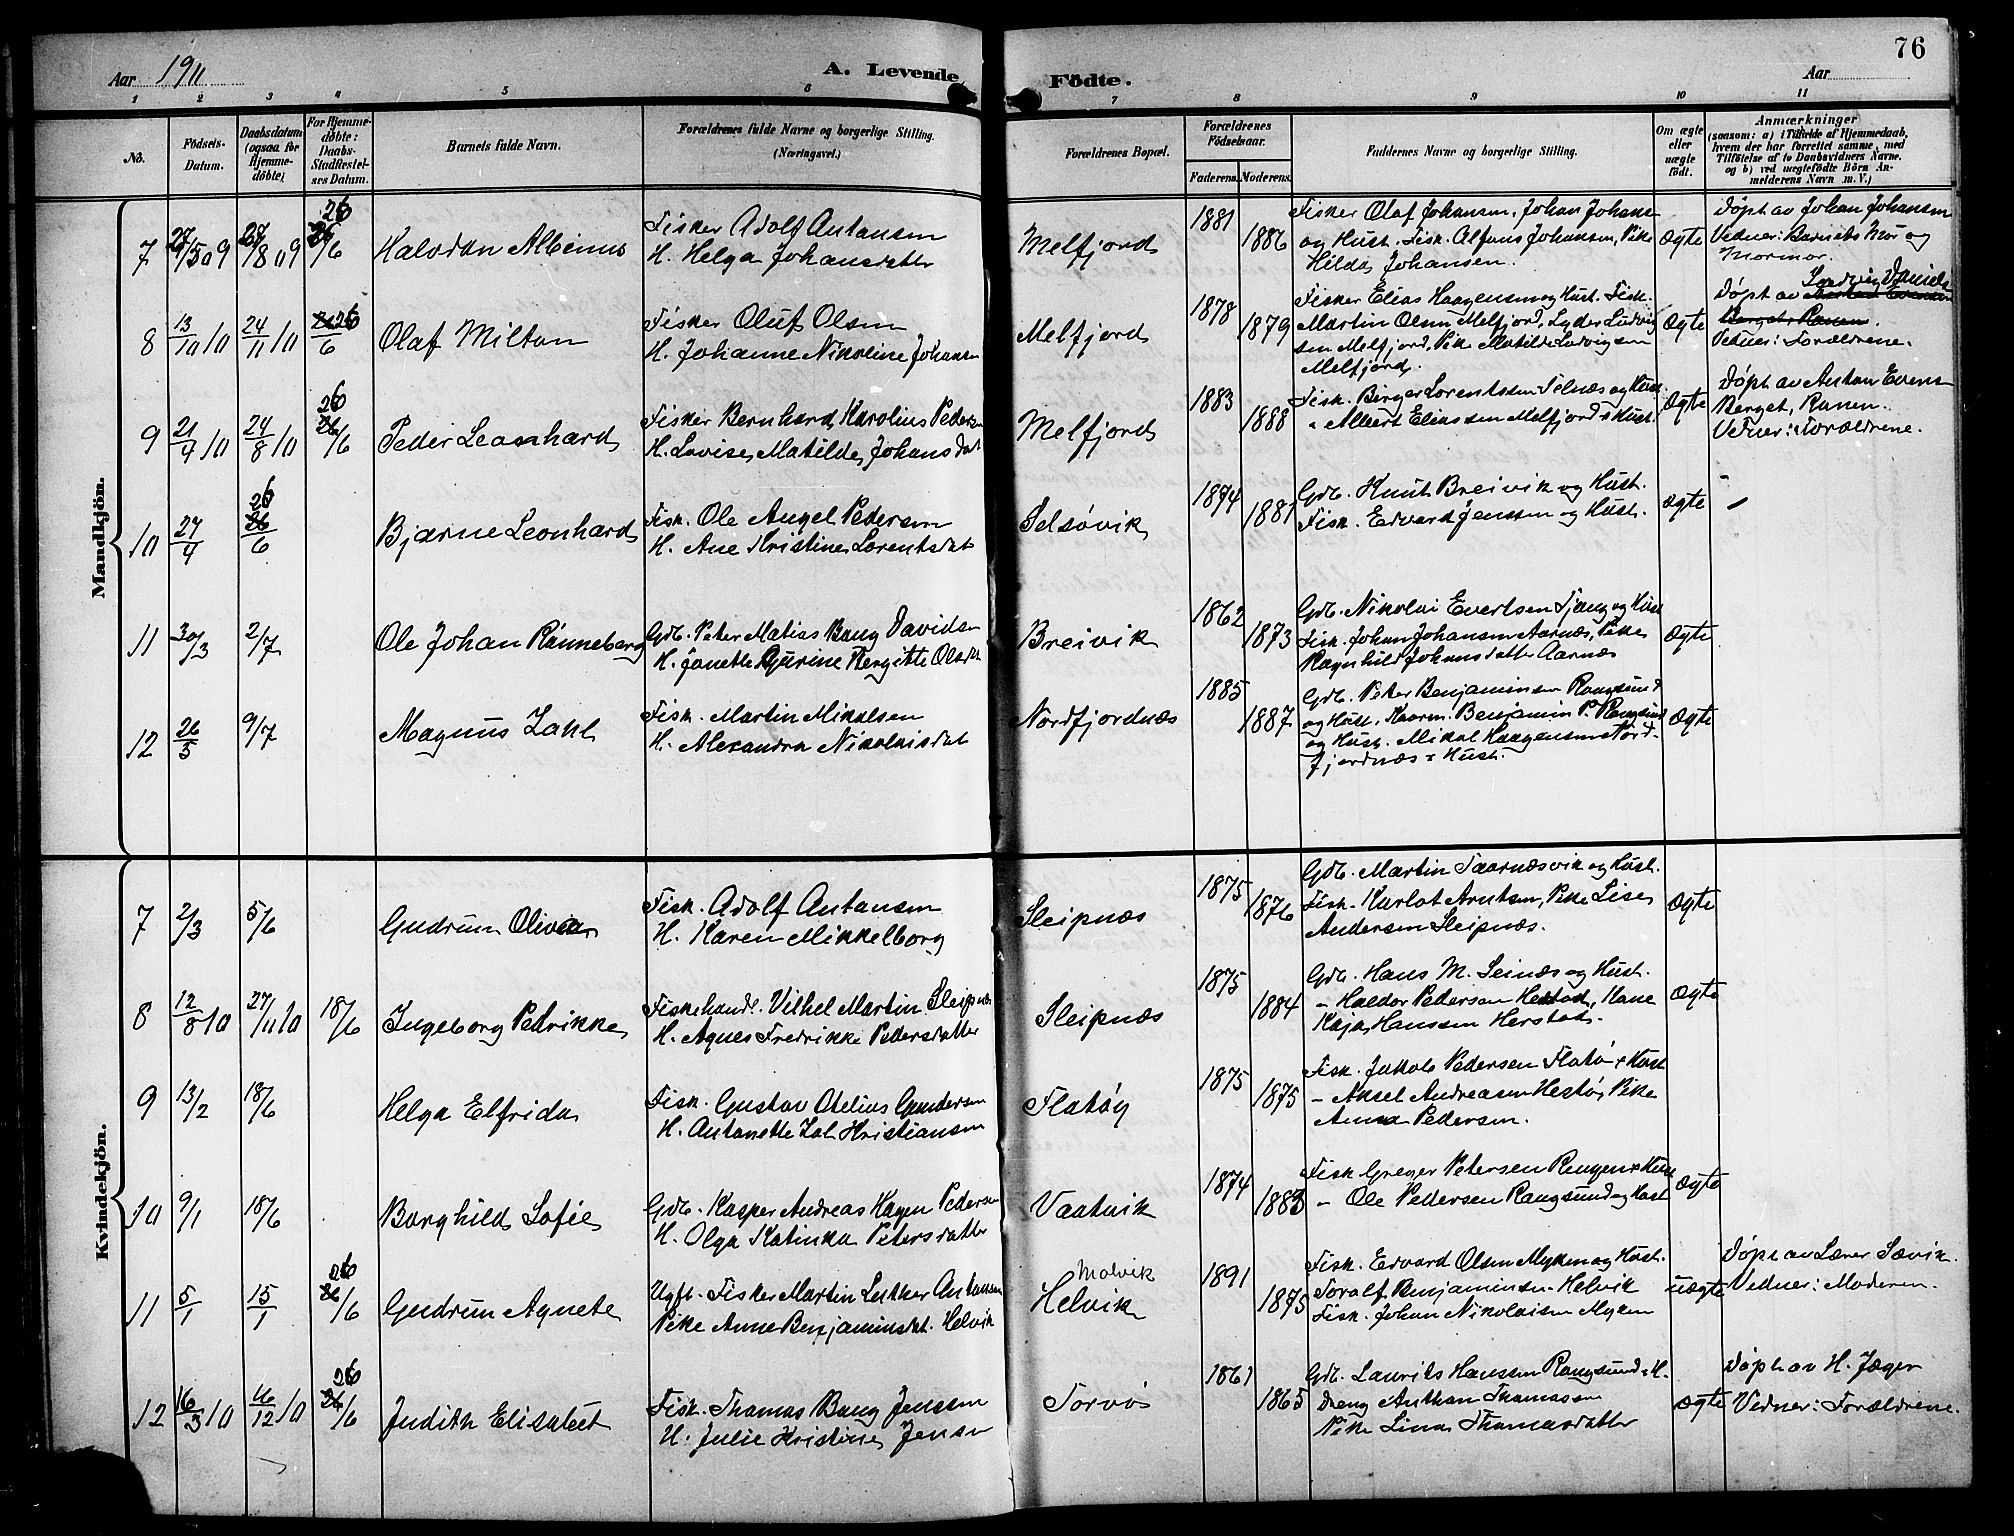 76
Aar 1911
A. Levende
Födte.
Aar
1 2 3 4 5 6 7 8 9 10 11
No.
Födsels-
Datum.
Daabsdatum
(ogsaa for
Hjemme-
döbte)
For Hjemme-
döbte:
Daabs-
Stadfæstel-
ses Datum.
Barnets fulde Navn.
Forældrenes fulde Navne og borgerlige Stilling.
(Næringsvei.)
Forældrenes Bopæl.
Forældrenes
Födselsaar.
Faderens.
Moderens.
Faddernes Navne og borgerlige Stilling.
Om ægte
eller
uægte
födt.
Anmærkninger
(saasom: a) i Tilfælde af Hjemmedaab,
hvem der har forrettet samme, med
Tilföielse af to Daabsvidners Navne,
og b) ved uægtefödte Börn An-
melderens Navn m. V.)
Mandkjön.
7 27/5 09 27/8 09 26/6
Halvdan Albinus
Fisker Adolf Antonsen
H. Helga Johansdatter
Melfjord
1881
1886
Fisker Olaf Johansen, Johan Johans
og Hust. Fisk. Alfons Johansen, Pike
Hilda Johansen.
Ægte
Døpt av Johan Johansen
Vidner: Barnets Mor og
Mormor.
8 13/10 10 24/11 10 26/6
Olaf Milton
Fisker Oluf Olsen
H. Johanne Nikoline Johansn
Melfjord
1878
1879
Fisker Elias Haagensen og Hust. Fisk.
Martin Olsen Melfjord, Lyder Ludvig
sen Melfjord, Pike Matilde Ludvigsen
Melfjord.
Ægte
Ludvig Daniels
Døpt av
Berget, Ranen.
Vidner: Forældrene.
9 21/4 10 24/8 10 26/6
Peder Leonhard
Fisker Bernhard Karolius Peders
H. Lovise Matilde Johansdat
Melfjord
1883
1888
Fisk. Birger Lorentsen Selnæs og Hust.
" Albert Eliassen Melfjord & Hust.
Ægte
Døpt av Anton Evens
Berget, Ranen.
Vidner: Forældrene.
10 27/4 26/6
Bjarne Leonhard
Fisk. Ole Angel Pedersen
H. Ane Kristine Lorentsdat
Selsøvik
1874
1881
Gdb. Knut Breivik og Hust.
Fisk. Edvard Jenssen og Hust.
ægte
11 30/3 2/7
Ole Johan Rønneberg
Gdb. Peter Matias Bang Davidsn
H. Janette Gurine Bergitte Olsdt
Breivik
1862
1873
Gdb. Nikolai Evertsen Tjong og Hust
Fisk. Johan Johansen Aarnæs, Pike
Ragnhild Johansdatter Aarnæs
Ægte
12 26/5 9/7
Magnus Zahl
Fisk. Martin Mikalsen
H. Alexandra Nikolaisdat
Nordfjordnæs
1885
1887
Gdb. Peter Benjaminsen Rangsund
og Hust. Kaarm. Benjamin P. Rangsund
og Hust. Mikal Haagensen Nord-
fjordnæs & Hust.
Ægte
Kvindekjön.
7 2/3 5/6
Gudrun Olivia
Fisk. Adolf Antonsen
H. Karen Mikkelborg
Sleipnæs
1875
1876
Gdb. Martin Taarnæsvik og Hust.
Fisk. Karlot Arntsen, Pike Lise
Andersen Sleipnæs.
Ægte
8 12/8 10 27/11 10 18/6
Ingeborg Pedrikke
Fiskehandl. Vilhel Martin Sleipnæs
H. Agnes Fredrikke Pedersdatter
Sleipnæs
1875
1884
Gdb. Hans M. Seinæs og Hust.
- Haldor Pedersen Herstad, Kone
Kaja Hanssen Herstad.
Ægte
9 13/2 18/6
Helga Elfrida
Fisk. Gustav Otelius Gundersen
H. Antonette Zal Kristiansen
Flatøy
1875
1875
Fisk. Jakob Pedersen Flatø & Hust
- Aksel Andreasen Hestø, Pike
Anna Pedersen.
10 9/1 18/6
Borghild Sofie
Gdb. Kasper Andreas Hagen Pedersen
H. Olga Katinka Petersdatter
Vaatvik
1874
1883
Fisk Greger Petersen Rengen & Hust
- Ole Pedersen Rangsund og Hust
Ægte
11 5/1 15/1 26/6
Gudrun Agnete
Ugft. Fisker Martin Luther Antonsen
Pike Anne Benjaminsdat. Helvik
Molvik
Helvik
1891
1875
Fisk. Edvard Olsen Myken og Hust.
Toralf Benjaminsen Helvik
Fisk. Johan Nikolaisen Myken
uægte
Døpt av Lærer Sævik.
Vidner: Moderen.
12 16/3 10 16/12 10 26/6
Judith Elisabet
Fisk. Thomas Bang Jenssen
H. Julie Kristine Jensn
Torvø
1861
1865
Gdb. Laurits Hanssen Rangsund & H.
Dreng Anthon Thomassen
Pike Lina Thomasdatter
ægte
Døpt av H. Jæger
Vidner: Forældrene.